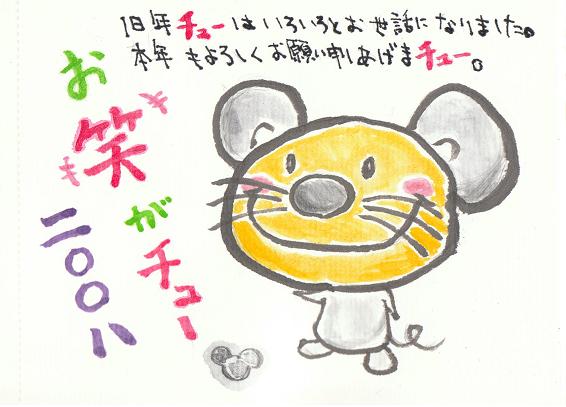 旧年チューはいろいろとお世話になりました。
本年もよろしくお願い申しあげまチュー。
お笑がチュー
二〇〇八